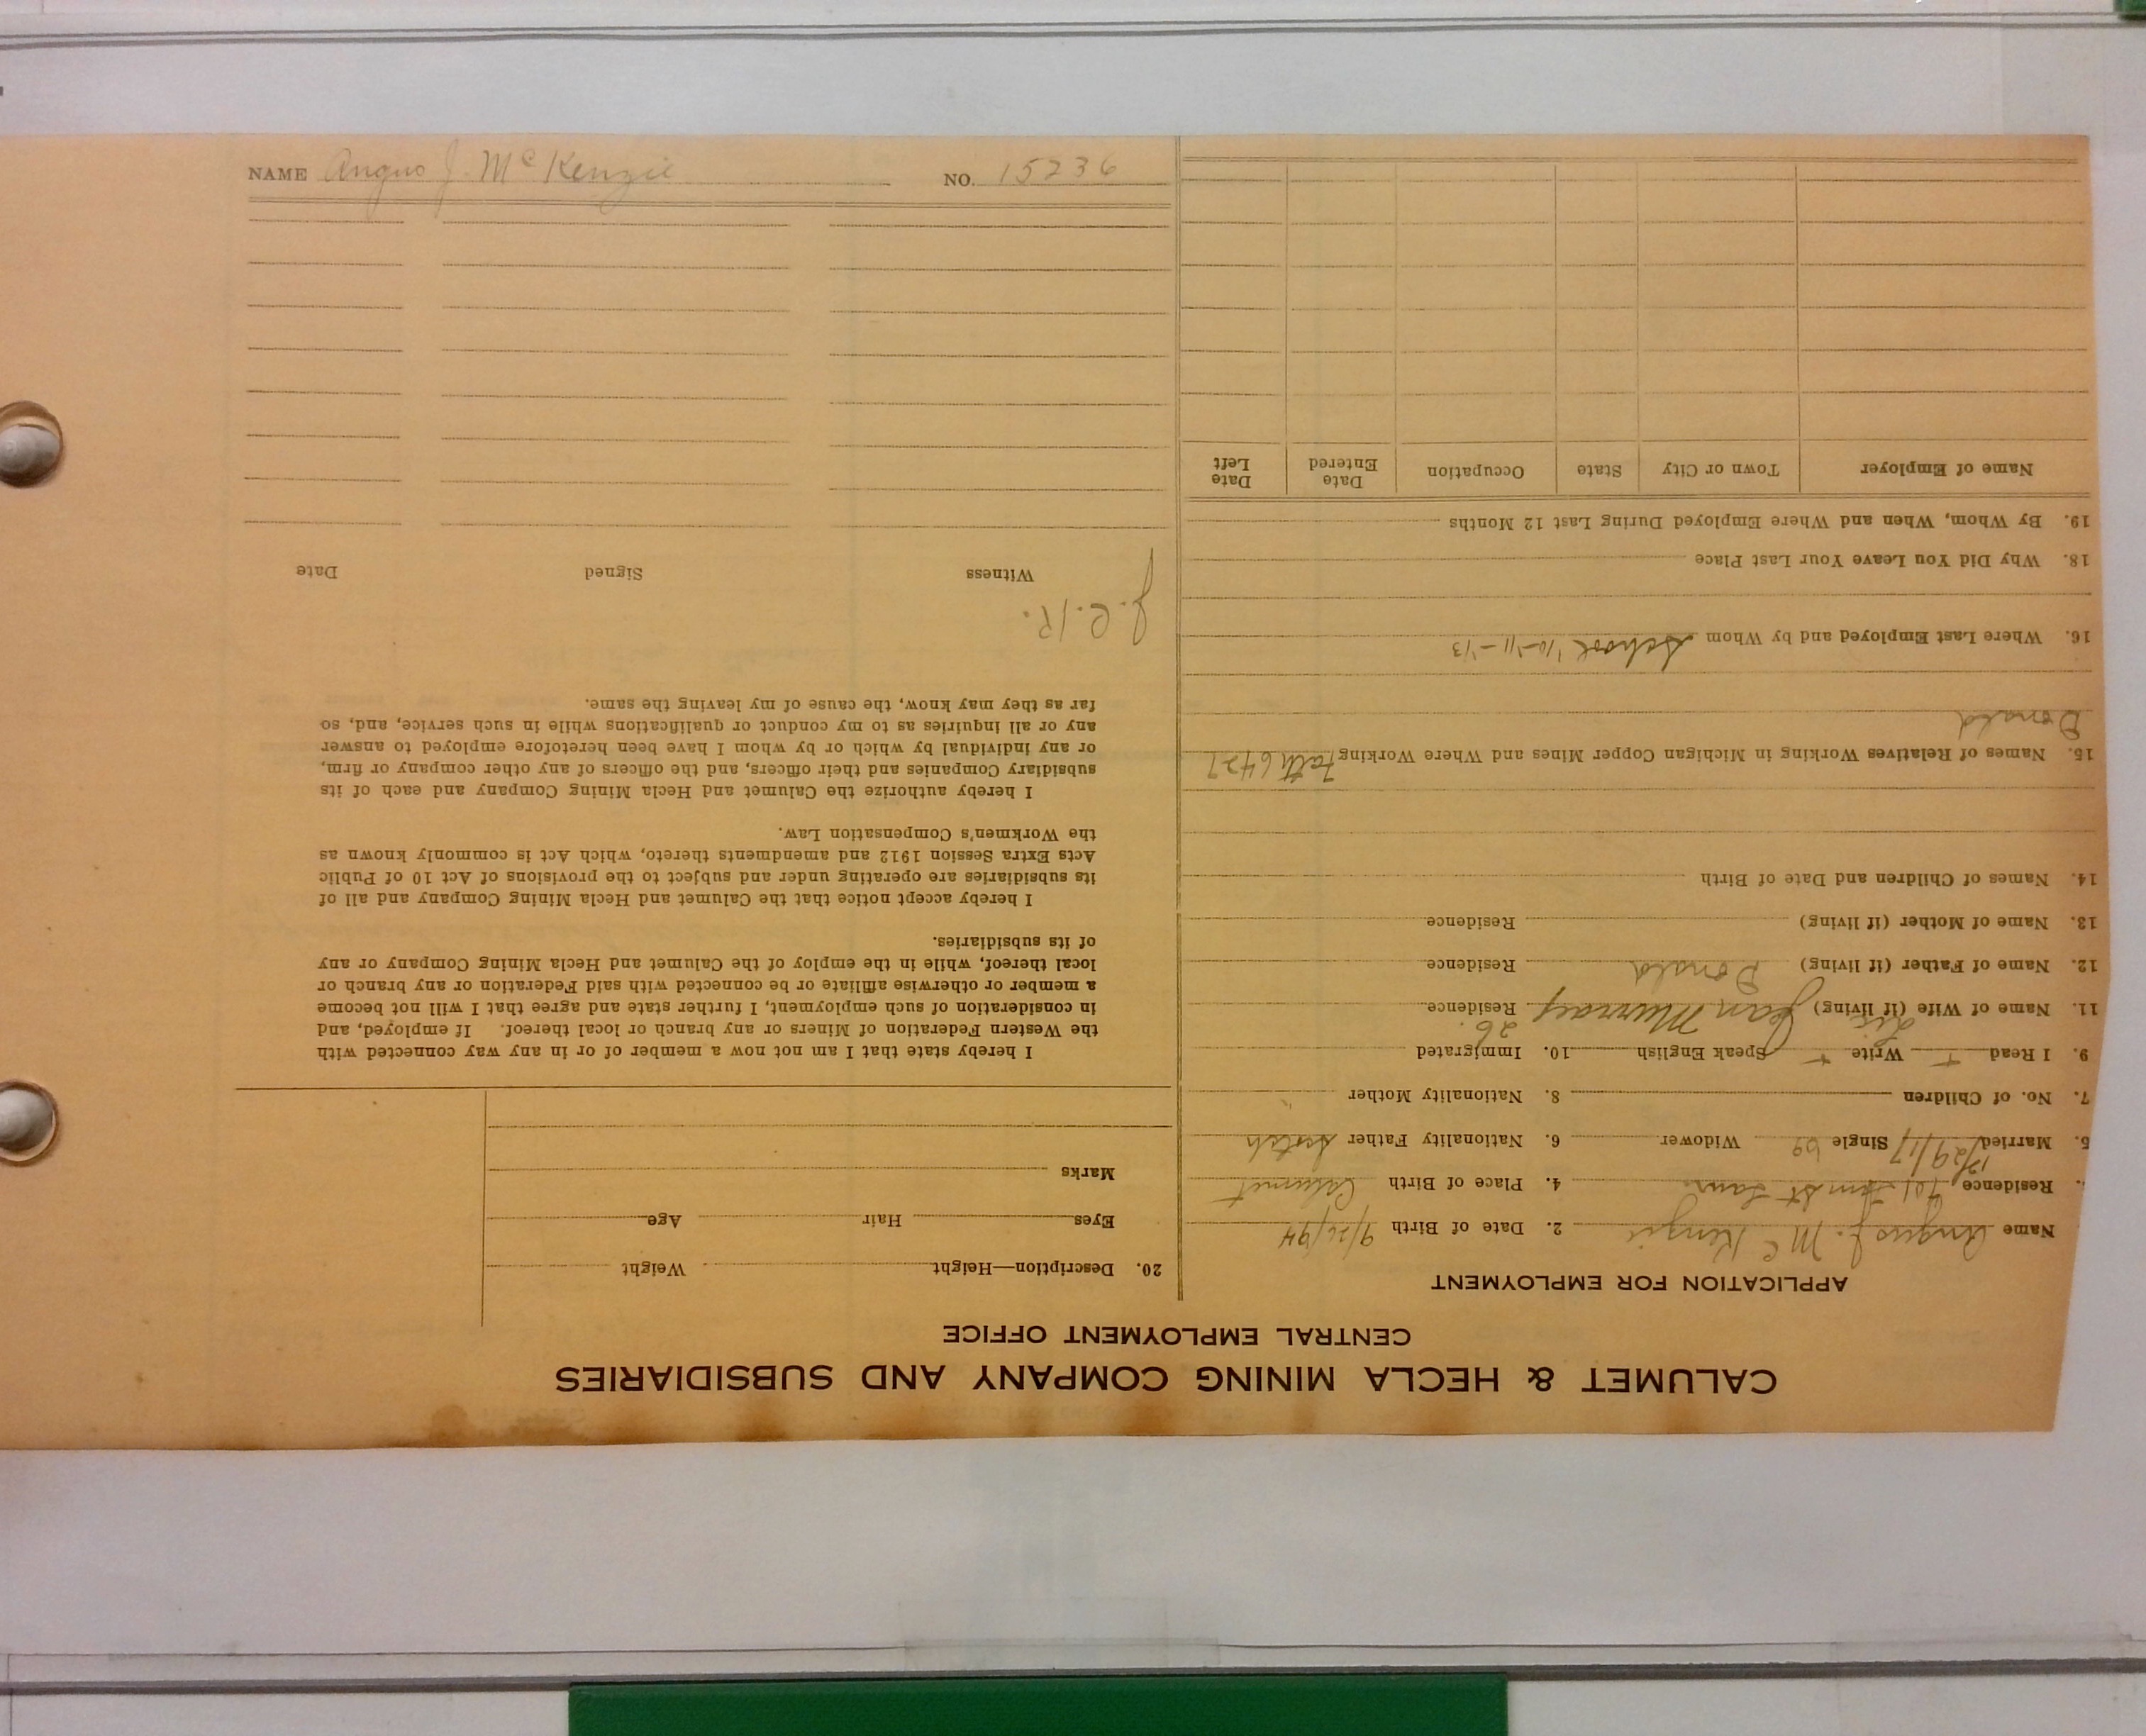 CALUMET & HECLA MINING COMPANY AND SUBSIDIARIES
CENTRAL EMPLOYMENT OFFICE
APPLICATION FOR EMPLOYMENT
Name Angus J. McKenzie 2. Date of Birth 9/26/94
Residence 401 St. Laur. 4. Place of Birth Calumet
5. Married 12/29/17 Single Widower 6. Nationality Father Scotch
7. No. of Children 8. Nationality Mother "
9. I Read + Write + Speak English 10. Immigrated
26.
11. Name of Wife (if living) Jean Murray Residence
12. Name of Father (if living) Donald Residence
13. Name of Mother (if living) Residence
14. Names of Children and Date of Birth
15. Names of Relatives Working in Michigan Copper Mines and Where Working Fath 6427
Donald
16. Where Last Employed and by Whom School '10-'11-'13
18. Why Did You Leave Your Last Place
19. By Whom, When and Where Employed During Last 12 Months
Name of Employer Town or City State Occupation Date Entered Date Left
20. Description—Height Weight
Eyes Hair Age
Marks
I hereby state that I am not now a member of or in any way connected with
the Western Federation of Miners or any branch or local thereof. If employed, and
in consideration of such employment, I further state and agree that I will not become
a member or otherwise affiliate or be connected with said Federation or any branch or
local thereof, while in the employ of the Calumet and Hecla Mining Company or any
of its subsidiaries.
I hereby accept notice that the Calumet and Hecla Mining Company and all of
its subsidiaries are operating under and subject to the provisions of Act 10 of Public
Acts Extra Session 1912 and amendments thereto, which Act is commonly known as
the Workmen's Compensation Law.
I hereby authorize the Calumet and Hecla Mining Company and each of its
subsidiary Companies and their officers, and the officers of any other company or firm,
or any individual by which or by whom I have been heretofore employed to answer
any or all inquiries as to my conduct or qualifications while in such service, and, so
far as they may know, the cause of my leaving the same.
J.C.R.
Witness Signed Date
NAME Angus J. McKenzie NO. 15236